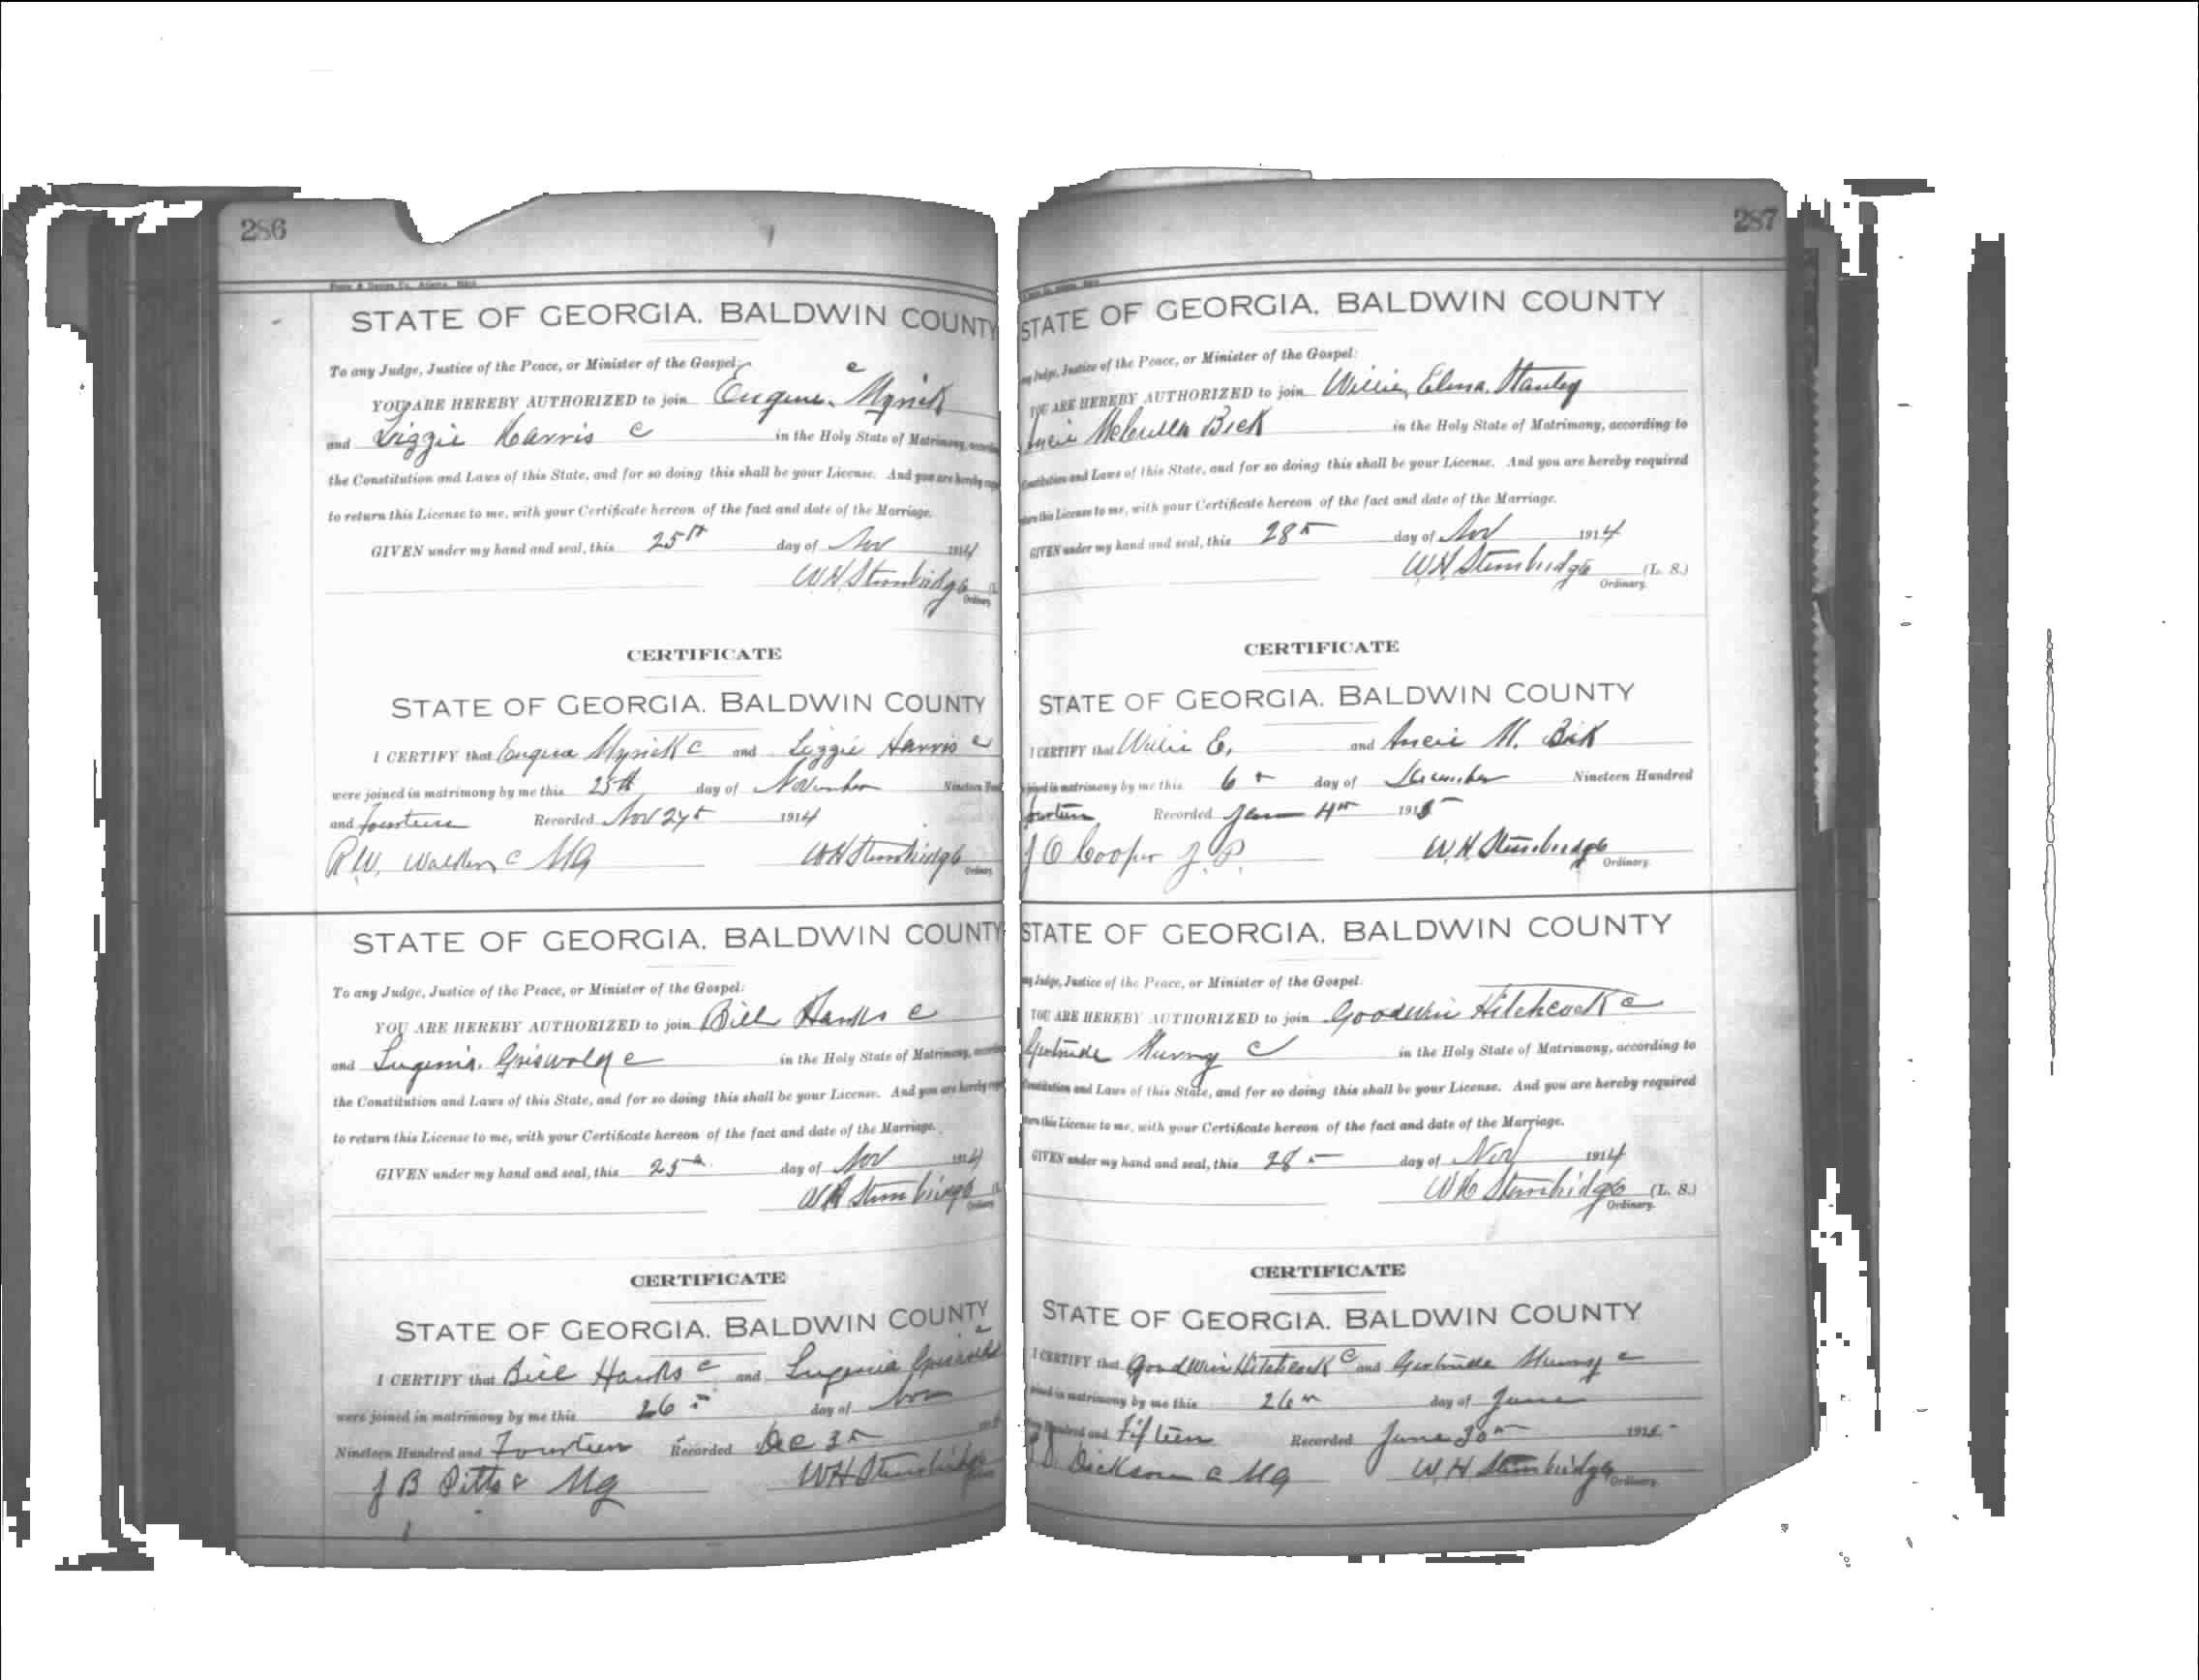 286
STATE OF GEORGIA. BALDWIN COUNTY
To any Judge, Justice of the Peace, or Minister of the Gospel:
YOU ARE HEREBY AUTHORIZED to join Eugene Myrick c
and Lizzie Harris c in the Holy State of Matrimony,
the Constitution and Laws of this State, and for so doing this shall be your License. And you are hereby
to return this License to me, with your Certificate hereon of the fact and date of the Marriage.
GIVEN under my hand and seal, this 25th day of Nov 1914
W H Stembridge
Ordinary
CERTIFICATE
STATE OF GEORGIA. BALDWIN COUNTY
I CERTIFY that Myrick c and Lizzie Harris c
were joined in matrimony by me this 25th day of November Nineteen
and fourteen Recorded Nov 1914
R W. c MG W H Stembridge
Ordinary
STATE OF GEORGIA. BALDWIN COUNTY
To any Judge, Justice of the Peace, or Minister of the Gospel:
YOU ARE HEREBY AUTHORIZED to join Bill Hanks c
and Griswold c in the Holy State of Matrimony,
the Constitution and Laws of this State, and for so doing this shall be your License. And you are hereby
to return this License to me, with your Certificate hereon of the fact and date of the Marriage.
GIVEN under my hand and seal, this 25 day of Nov 1914
W H Stembridge
Ordinary
CERTIFICATE
STATE OF GEORGIA. BALDWIN COUNTY
I CERTIFY that Bill Hanks c and c
were joined in matrimony by me this 26 day of Nov
Nineteen Hundred and Fourteen Recorded Dec 3
J B Pitts c MG W H Stembridge
287
STATE OF GEORGIA. BALDWIN COUNTY
Judge, Justice of the Peace, or Minister of the Gospel:
YOU ARE HEREBY AUTHORIZED to join Willie Elma Stanley
in the Holy State of Matrimony, according to
Constitution and Laws of this State, and for so doing this shall be your License. And you are hereby required
this License to me, with your Certificate hereon of the fact and date of the Marriage.
GIVEN under my hand and seal, this 28 day of Nov 1914
W H Stembridge (L. S.)
Ordinary.
CERTIFICATE
STATE OF GEORGIA. BALDWIN COUNTY
I CERTIFY that Willie E. and M.
in matrimony by me this 6 day of December Nineteen Hundred
fourteen Recorded Jan 4 1915
J O Cooper J. P. W. H. Stembridge
Ordinary
STATE OF GEORGIA. BALDWIN COUNTY
Judge, Justice of the Peace, or Minister of the Gospel:
YOU ARE HEREBY AUTHORIZED to join Goodwin Hitchcock c
Gertrude c in the Holy State of Matrimony, according to
Constitution and Laws of this State, and for so doing this shall be your License. And you are hereby required
this License to me, with your Certificate hereon of the fact and date of the Marriage.
GIVEN under my hand and seal, this 28 day of Nov 1914
W H Stembridge (L. S.)
Ordinary.
CERTIFICATE
STATE OF GEORGIA. BALDWIN COUNTY
I CERTIFY that Goodwin Hitchcock c and Gertrude c
in matrimony by me this 26 day of June
Hundred and Fifteen Recorded June 30 1915
Dickson c MG W. H. Stembridge
Ordinary.